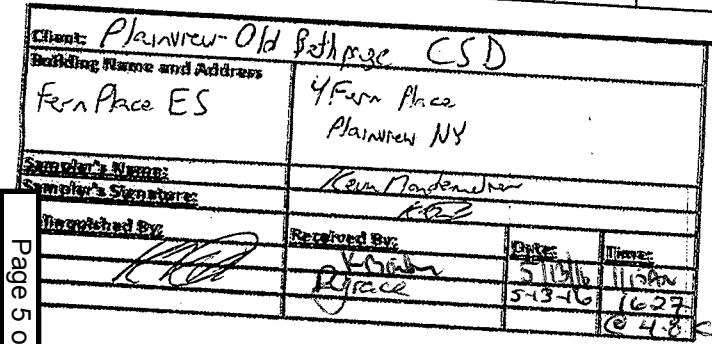 Client: Plainview-Old Bethpage CSD
Building Name and Address
Fern Place ES
4 Fern Place
Plainview NY
Sampler's Name: Kevin
Sampler's Signature:
Relinquished By:
Received By:
Date:
Time:
5/13/16
5-13-16 1627
@ 4.8
Page 5 o